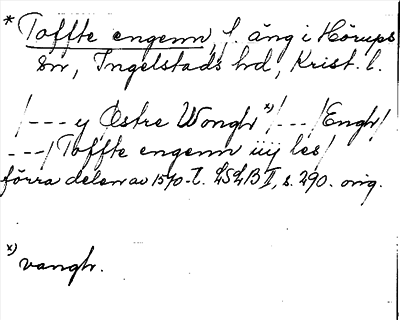 * Toffte engenn, f. äng i Hörups
sn, Ingelstads hd, Krist. l.
/--- y Østre Wongh *)/---/Engh/
---/Toffte engenn iiij les/
förra delen av 1570-t. LSLB II, s. 290. orig.
x) vangh.